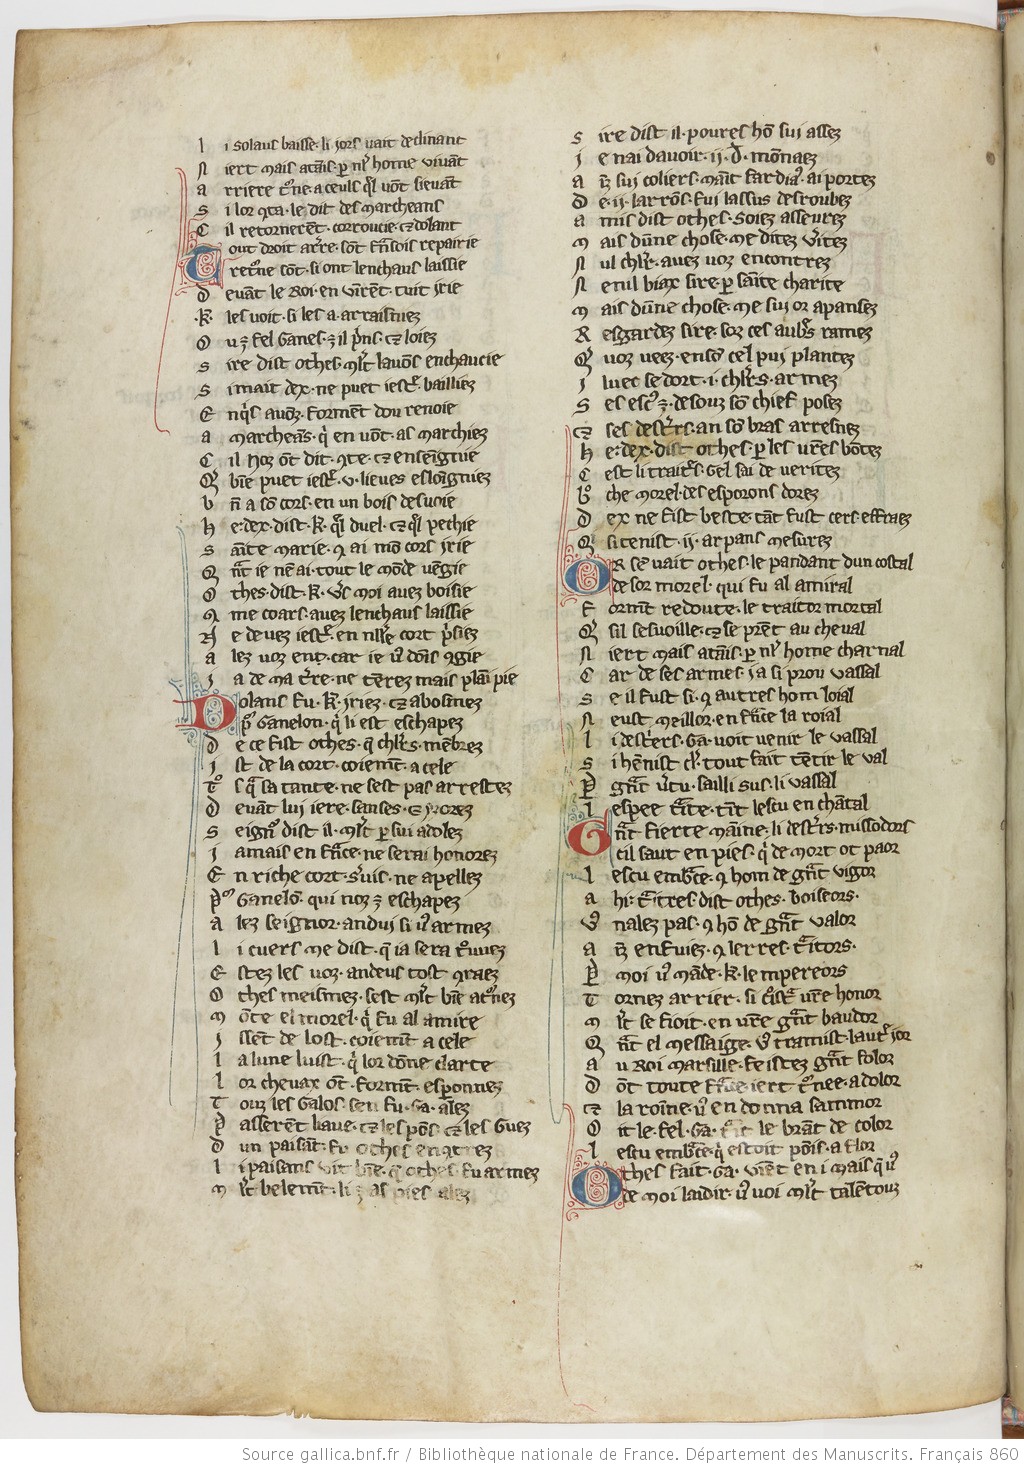 l i solauz baisse· li jors uait declinant
N iert mais atāis· ꝑ nl' home viuāt
a rriere t'ne· a ceuls q̄l uōt sieuāt
S i lor 9ta· le dit des marcheans
C il retornerēt· corroucie· ⁊ dolant
Tout droit arr̄e· sōt frāsois repairie
C retorne sōt· si ont lenchaus laissie
D euāt le Roi· en vīrēt· tuit jrie
·K· les uoit· si les a· arraisniez
O u ē fel Ganes· ē il p̄ns· ⁊ loiez
S ire dist othes· ml't lauōs enchaucie
S i mait dex· ne puet iestr̄· bailliez
E nq̄s auōz· forment dou renoie
a marcheās· q̄ en uōt· as marchiez
C il noz ōt dit· 9te· ⁊ enseignie
Q̄ biē puet iestr̄· v· lieues esloigniez
b n̄ a sō cors· en un bois desuoie
h e· dex· dist· K· q̄l duel· ⁊ q̄l pechie
S āīte marie· 9 ai mō cors jrie
Q n̄t ie nē ai· tout le mōde vēgie
O thes· dist· K· v's moi auez boisie
9 me coars· auez lenchaus laissie
N e deuez iestr̄· en nr̄e cort p̄siez
a lez uoz ent· car ie v' dōis 9gie
J a de ma t're· ne tērez mais plaī pie
Dolans fu· K· jriez· ⁊ abosmez
P̄ Ganelon· q̄ li est eschapez
D e ce fist othes· q̄ chl'rs· mēbrez
J st de la cort· coiemt̄· a cele
T° s q̄ sa tante· ne sest pas arrestez
D euāt lui iere· sanses· ⁊ morez
S eign° dist il· ml't ꝑ sui adolez
J amais en frāce· ne serai honorez
E n riche cort· s'uis· ne apellez
P° Ganelō· qui noz ē eschapez
a lez seignor· andui si v' armez
l i cuers me dist· q̄ ia sera t°uuez
E stez les uoz· andeus tost 9raez
O thes meismez· sest ml't biē at°nez
M ōte el morel· q̄ fu al amire
J ssēt de lost· coiemt̄ a cele
l a lune luist· q̄ lor dōne clarte
l or cheuax ōt· formt̄· esponnez
T ouz les galos· sen fu· Ga· alez
P asserēt liaue· ⁊ les pōs· ⁊ les Guez
D un paisāt· fu othes en9trez
l i paisans vit biē· q̄ othes· fu armez
M l't belemt̄· li ē as pies alez
S ire dist il· poures hō sui assez
J e nai dauoir· ij· d· mōnaez
a īz sui coliers· māt fardia' ai portez
D e· ij· larrōs· fui lassus desroubez
a mis dist othes· soiez asseurez
M ais dūne chose· me ditez v'itez
N ul chl'r· auez uoz encontrez
N enil biax sire· ꝑ saīte charite
M ais dūne chose· me sui or apansez
R esgardez sire· sor ces aub's ramez
Q̄ uoz ueez· ensō cel pui plantez
J luec se dort· i· chl'rs· armez
S es esc' ē· desouz sō chief posez
⁊ ses destr̄s· an sō bras arresnez
h e· dex· dist othes· ꝑ les vr̄es bōtez
C est li traitr̄s· gel sai de veritez
b° che morel· des esporons dorez
D ex ne fist beste· tāt fust cers effraez
Q̄ si tenist· ij· arpans mesurez
Or se vait othes· le pandant dun costal
desor morel· qui fu al amiral
F ormt̄ redoute· le traitor mortal
Q̄ sil sesuoille· ⁊ se prēt au cheual
N iert mais atāis· ꝑ nl' home charnal
C ar de ses armes· ja si prou vassal
S e il fust si· 9 autres hom loial
N eust meillor· en frāce la roial
l i destr̄rs· Ga· uoit uenir le vassal
S i hēnist cl'r· tout fait tētir le val
P̄ grāt v'tu· sailli sus· li vassal
l espee t̄ite· tīt lescu en chātal
Grāt fierte maīne· li destr̄rs· missodors
cil saut en pies· q̄ de mort ot paor
l escu embr̄ce· 9 hom de grāt vigor
a hi· t̄itres· dist othes· boiseors·
v' nalez pas· 9 hō de grāt valor
a īz enfuiez· 9 lerres· t̄itors·
P̄ moi v' māde· K· lempereors
T ornez arrier· si c°istr̄ vr̄e honor
M l't se fioit· en vr̄e grāt baudor
Q n̄t el messaige· v' tramist· lautr̄ jor
a u roi marsille· feistez grāt folor
D ōt toute frāce· iert t°nee· a dolor
⁊ la roīne· v' en donna sammor
O it le fel· Ga· trait le brāt de color
l escu embr̄ce· q̄ estoit pōis· a flor
Othes fait· Ga· viēt en i mais q̄ v'
de moi laidir· v' uoi ml't talētouz
Source gallica.bnf.fr / Bibliothèque nationale de France. Département des Manuscrits. Français 860